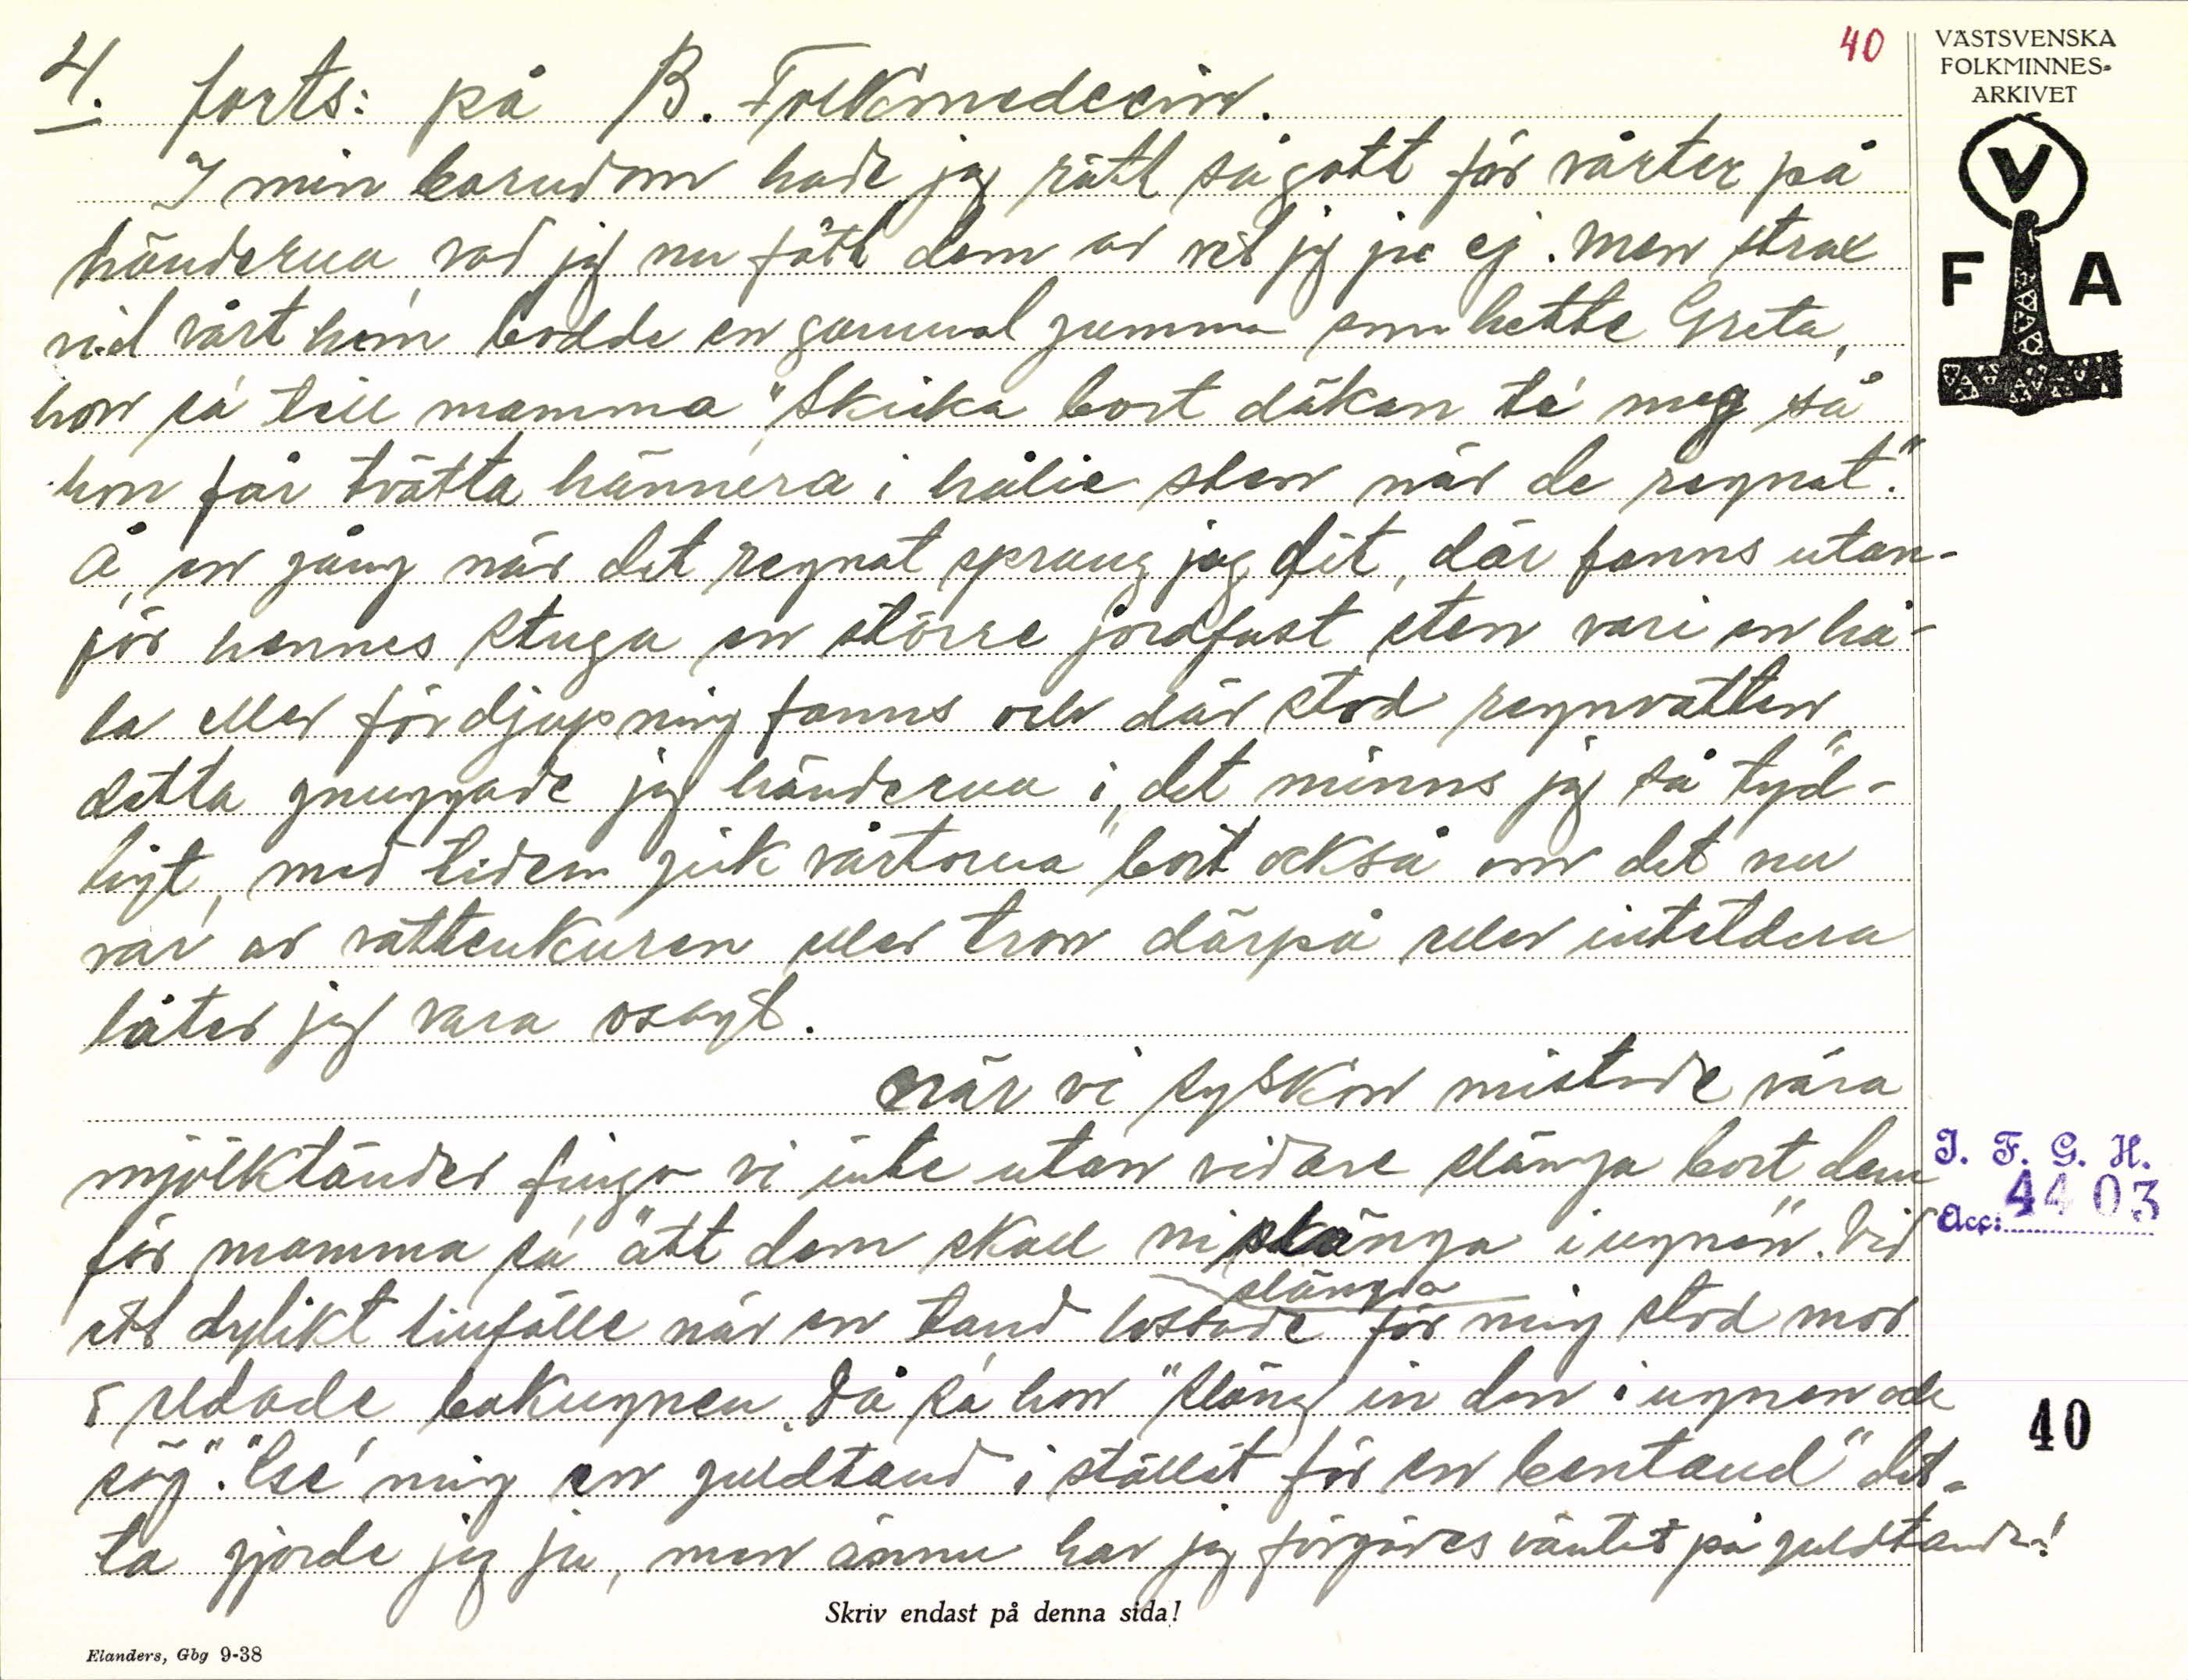 40
VÄSTSVENSKA
FOLKMINNES-
ARKIVET
V
F A
4. forts: på B. Folkmedecin.
I min barndom hade jag rätt så gott för vårter på
händerna, vad jag nu fått dem av vet jag ju ej. Men strax
vid vårt hem bodde en gammal gumma som hette Greta,
hon sa' till mamma "Skicka bort däkan te' meg så
hon får tvätta hännera i hålie sten när de regnat".
Å, en gång när det regnat sprang jag dit, där fanns utan-
för hennes stuga en större jordfast sten vari en hå-
la eller fördjupning fanns och där stod regnvatten
detta gnuggade jag händerna i, det minns jag så tyd-
ligt, med tiden "gick vårtorna" bort också om det nu
var av vattenkuren eller tron därpå eller intetdera
låter jag vara osagt.
När vi syskon mistade våra
mjölktänder fingo vi inte utan vidare slänga bort dem
för mamma sa' "att dem skall ni slänga i ugnen". Vid
slänga
ett dylikt tillfälle när en tand lossade för mig stod mor
o eldade bakugnen. Då sa' hon "släng in den i ugnen och
säg". "Ge' mig en guldtand i stället för en bentand" det-
ta gjorde jag ju, men ännu har jag förgäves väntat på guldtanden!
I. F. G. H.
Acc: 4403
40
Skriv endast på denna sida!
Elanders, Gbg 9-38